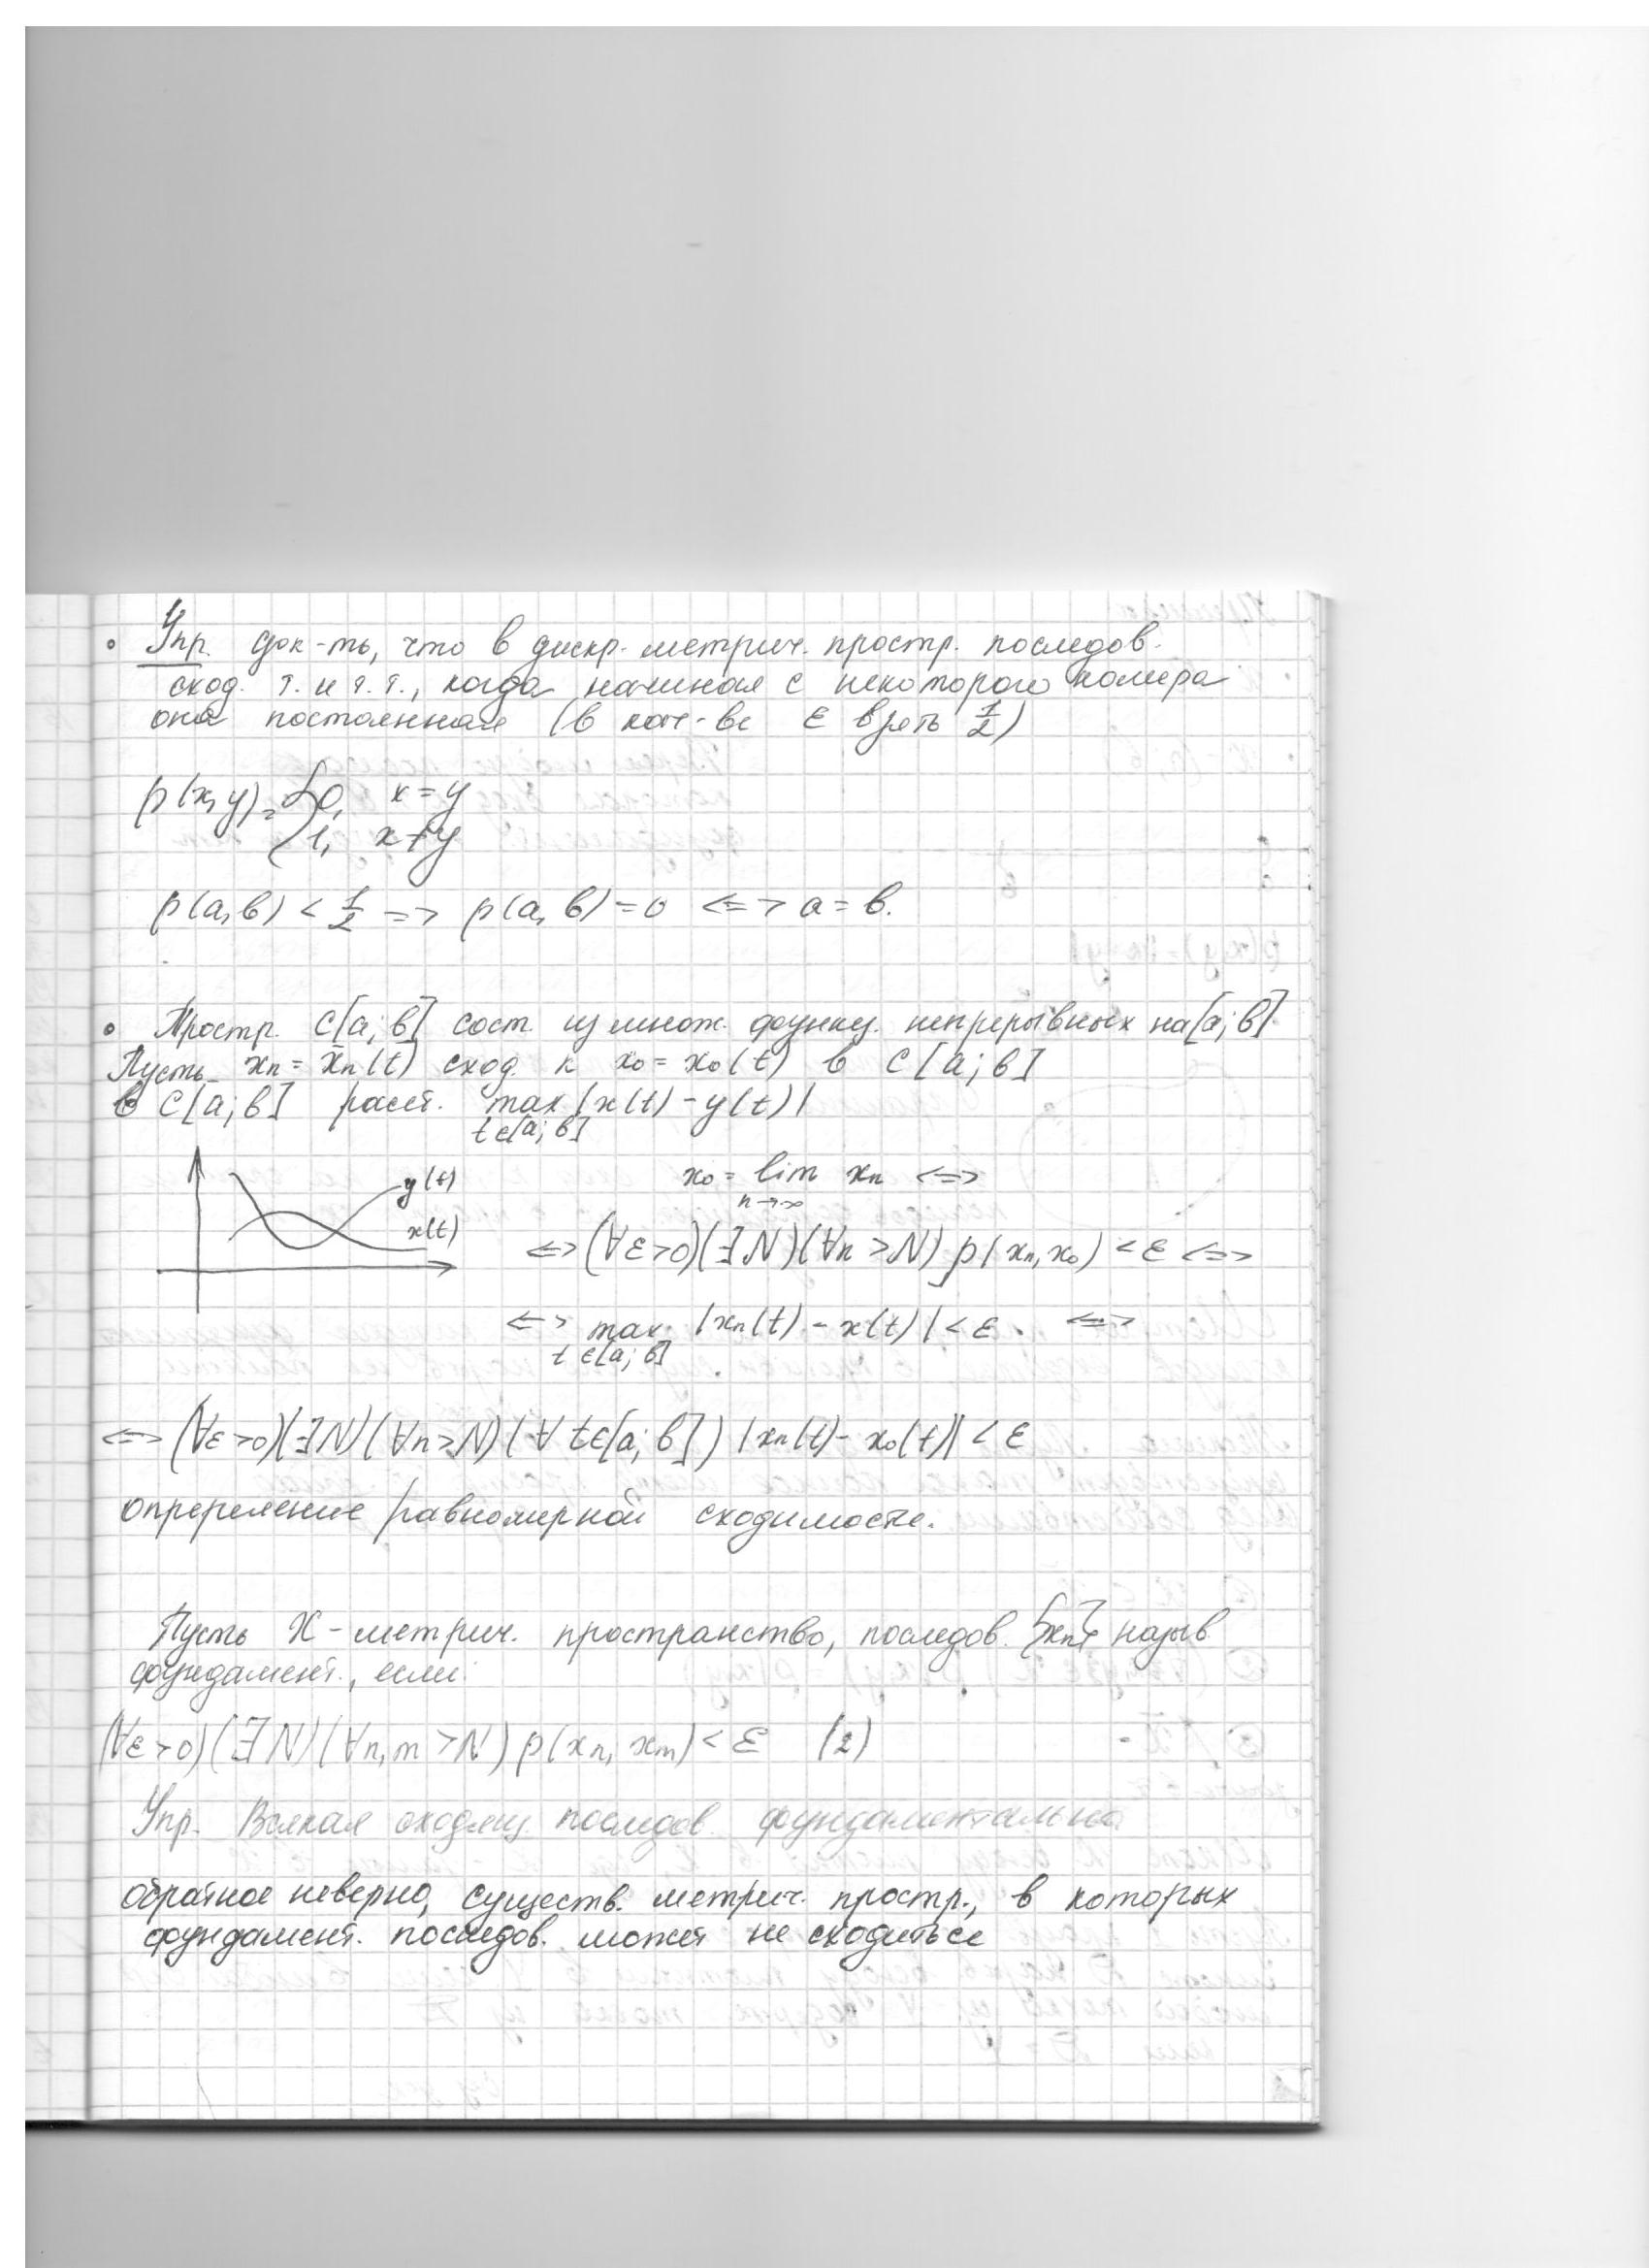 • Упр. док-ть, что в дискр. метрич. простр. последов.
сход. т. и т. т., когда начиная с некоторого номера
она постоянная (в кач-ве ε взять 1/2)
ρ(x,y) = { 0, x = y
1, x ≠ y
ρ(a, b) < 1/2 => ρ(a, b) = 0 <=> a = b.
• Простр. C[a; b] сост. из множ. функц. непрерывных на [a; b]
Пусть xₙ = xₙ(t) сход. к x₀ = x₀(t) в C[a; b]
в C[a; b] расст. max |x(t) - y(t)|
t∈[a; b]
y(t)
x(t)
x₀ = lim xₙ <=>
n→∞
<=> (∀ε>0)(∃N)(∀n >N) ρ(xₙ, x₀) < ε <=>
<=> max |xₙ(t) - x(t)| < ε . <=>
t∈[a; b]
<=> (∀ε>0)(∃N)(∀n>N)(∀ t∈[a; b]) |xₙ(t) - x₀(t)| < ε
определение равномерной сходимости.
Пусть X - метрич. пространство, последов. {xₙ} назыв.
фундамент., если:
(∀ε>0)(∃N)(∀n,m >N) ρ(xₙ, xₘ) < ε (2)
Упр. Всякая сходящ. последов. фундаментальна
обратное неверно, существ. метрич. простр., в которых
фундамент. последов. может не сходиться